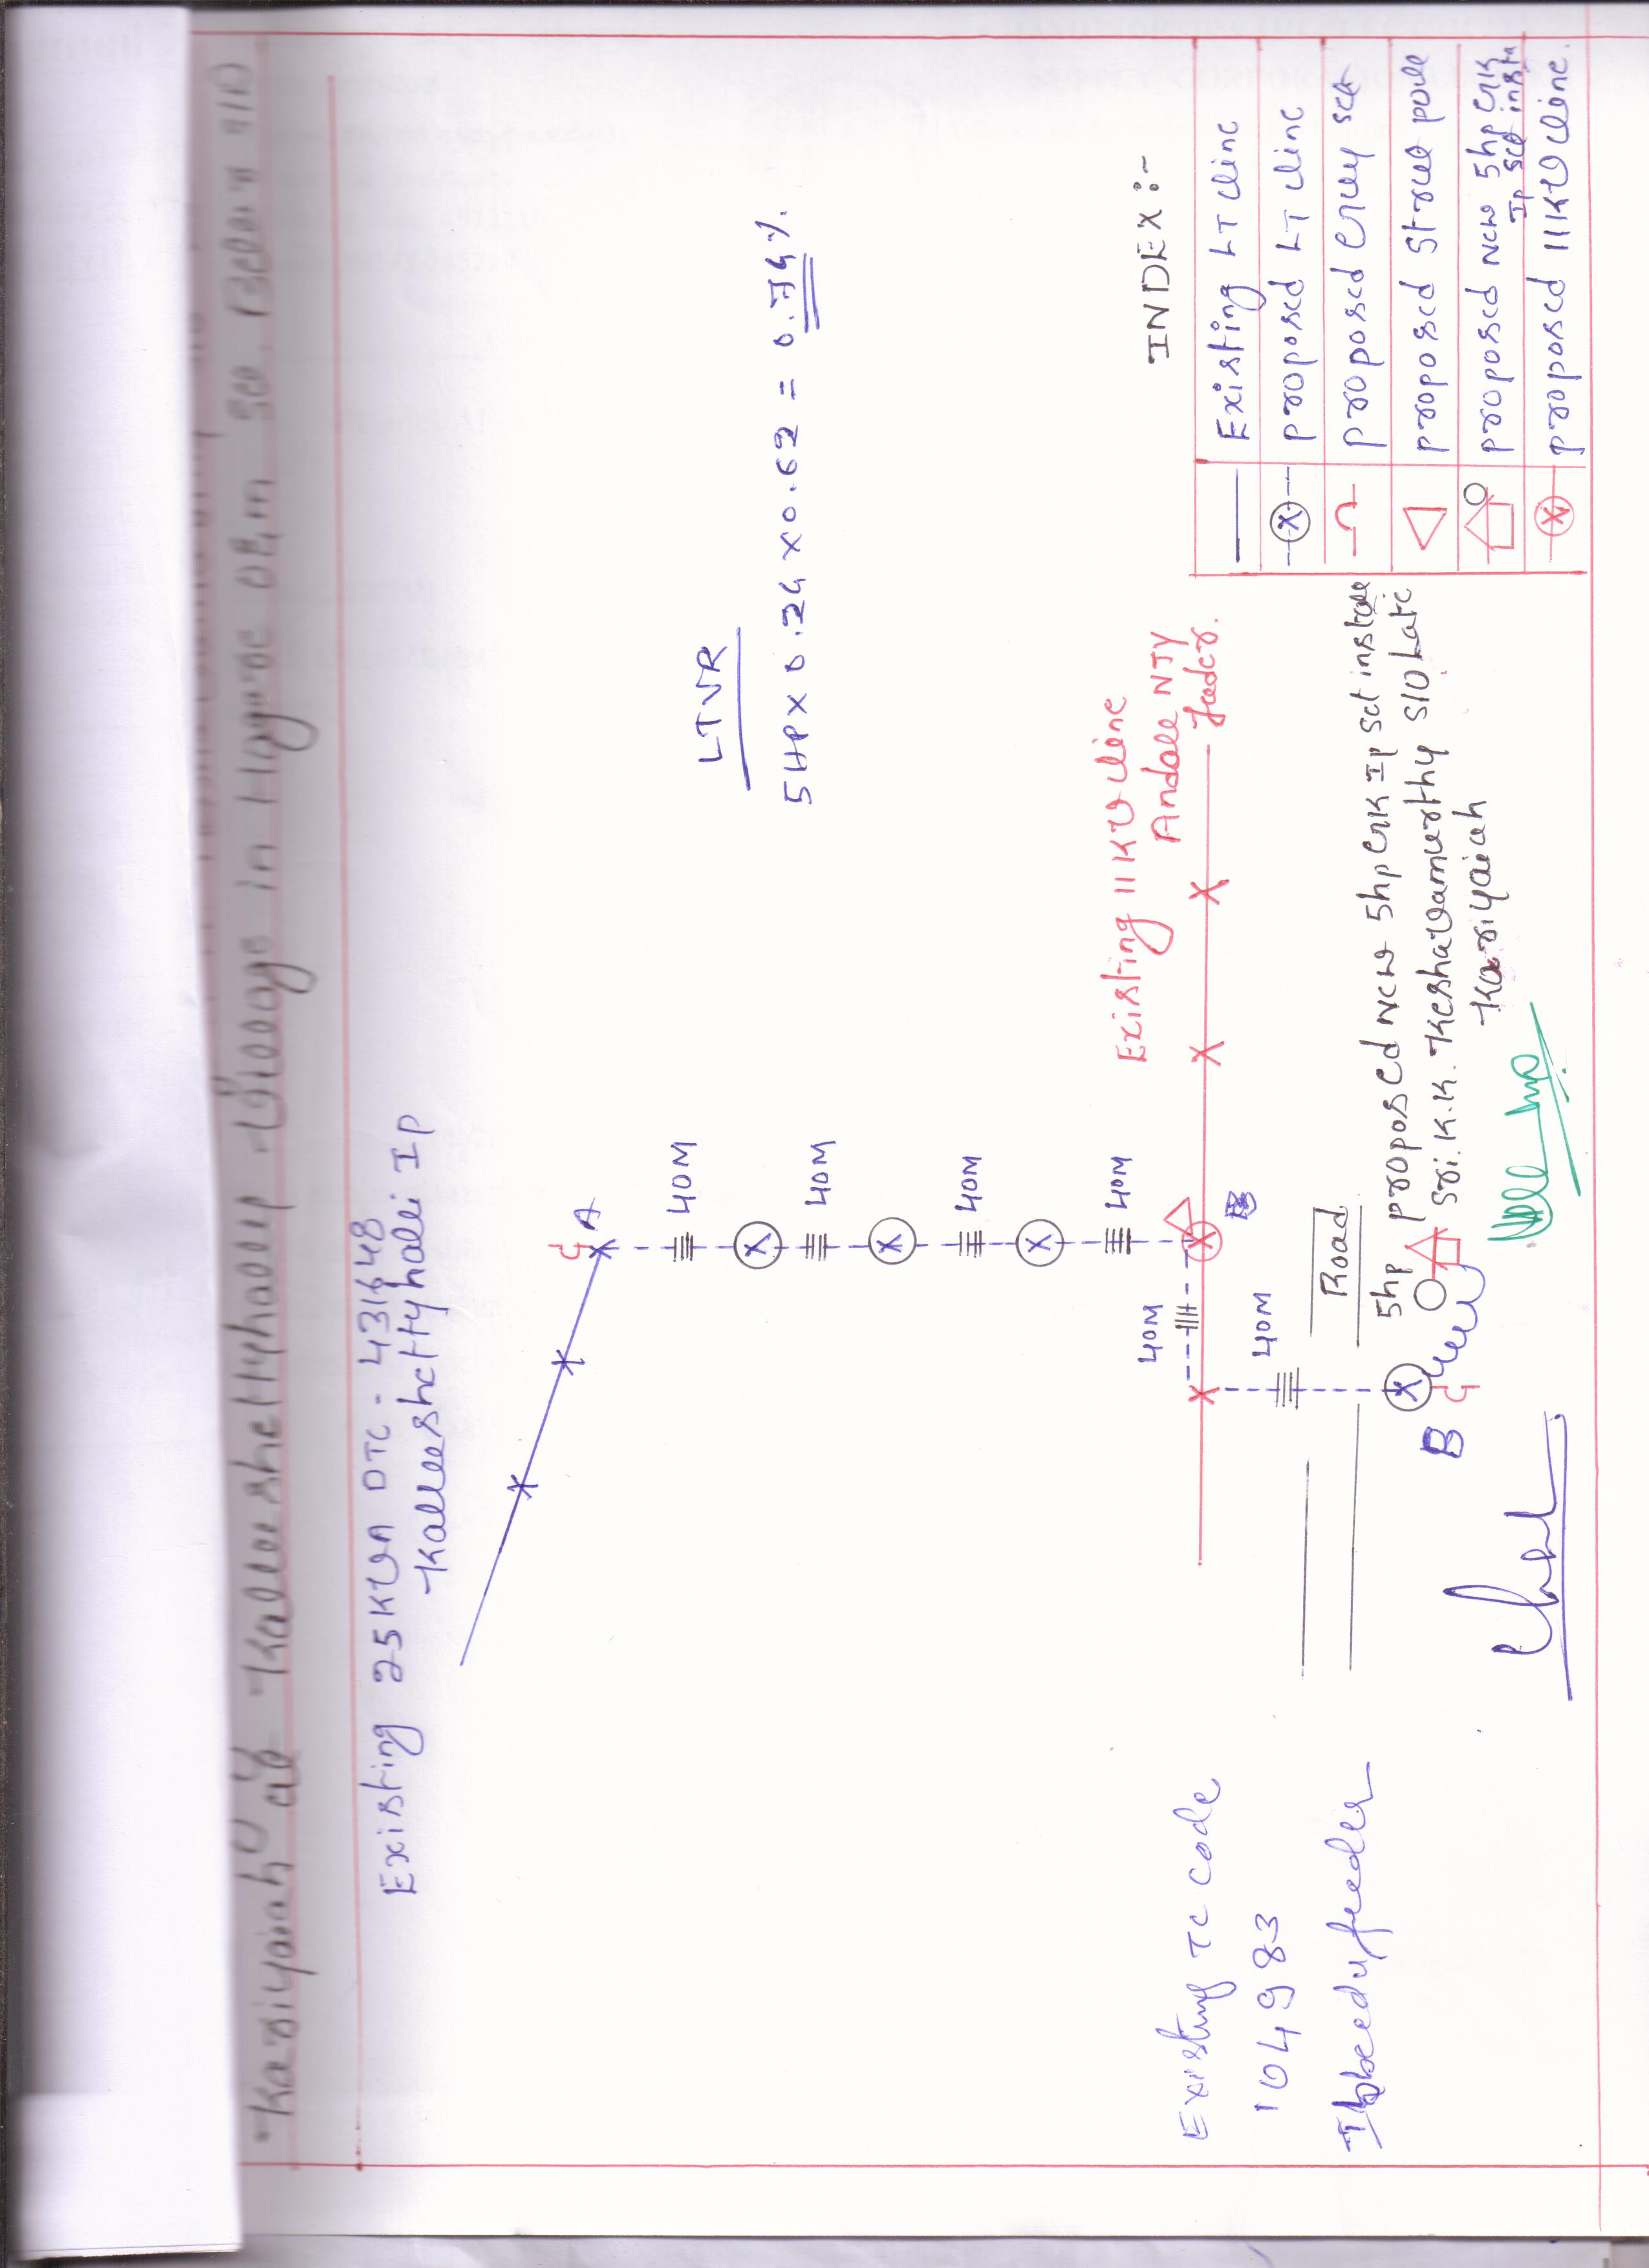 Kariyaiah at Kalleshettyhally village in Hagare O&m so, Belur
Existing 25KVA DTC - 431648
Kalleshettyhalli Ip
A
40M
40M
40M
40M
LTVR
5HP X 0.24 X 0.62 = 0.74%.
Existing 11KV line
Andale NJY
feeder.
B
40M
40M
Road
B
5hp
proposed new 5hp GK Ip set install
Sri. K.K. Keshavamurthy S/O Late
Kariyaiah
Existing TC code
104983
Ibbeedu feeder
INDEX :-
Existing LT line
proposed LT line
proposed Guy set
proposed Strut pole
proposed new 5hp GK
Ip set insta
proposed 11KV line.